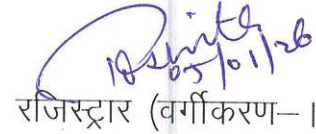 05/01/26
रजिस्ट्रार (वर्गीकरण–।